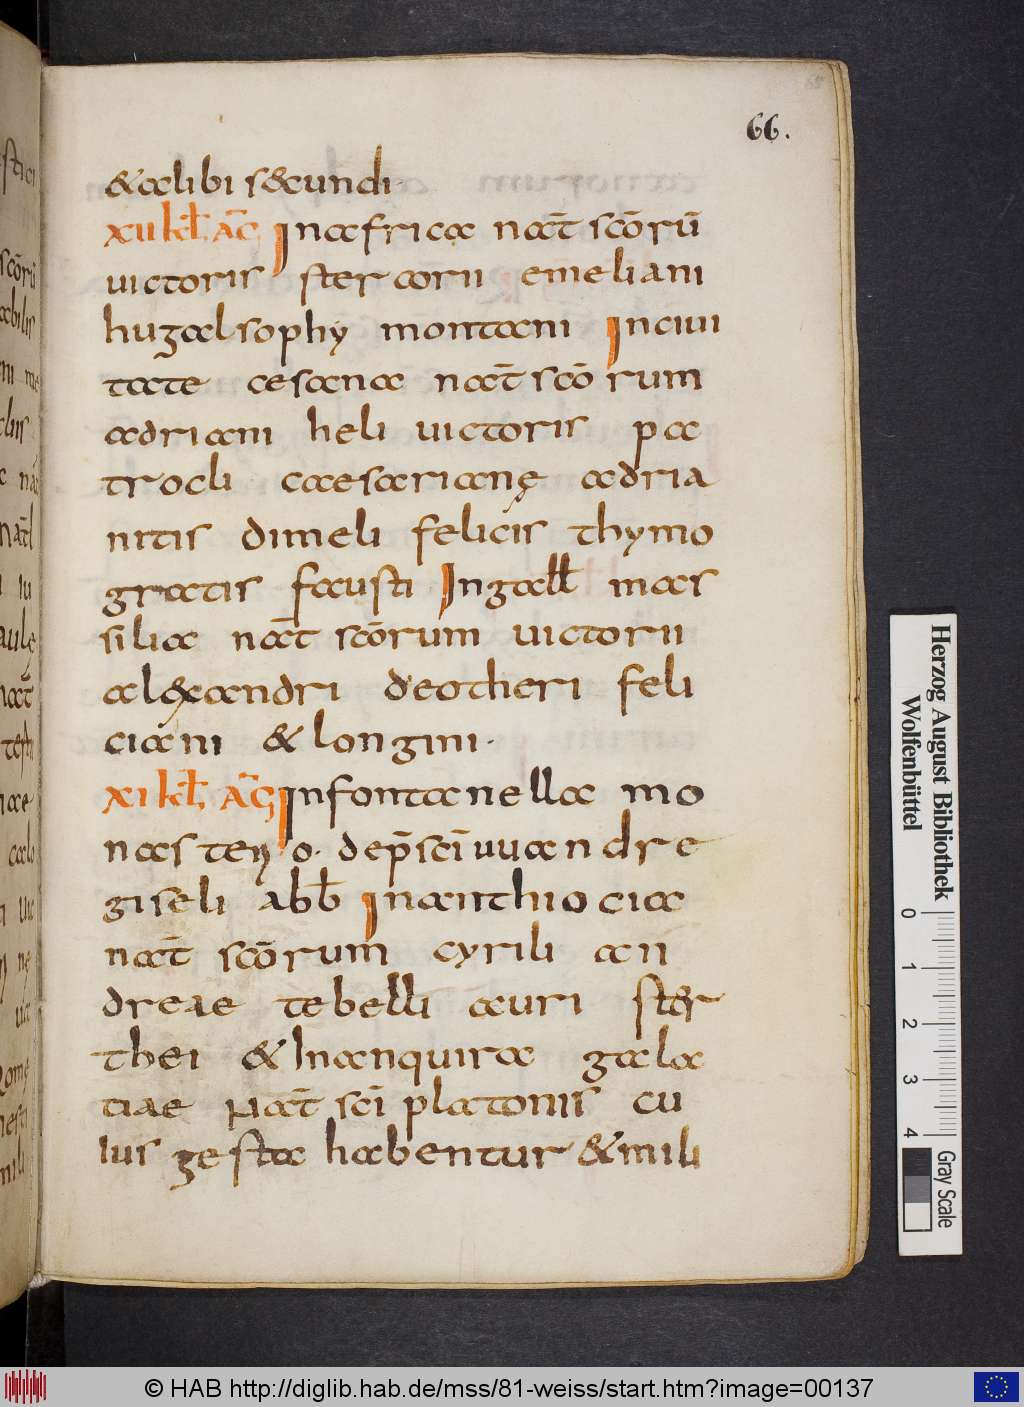 66.
&alibi s&cundi
xii kł ãg Inafrica nat̄ scōrū
uictoris stercorii emeliani
hugalsophy montani Inciui
tate cesanae nat̄ scōrum
adriani heli uictoris pa
trocli caesarianę adria
nitis dimeli felicis thymo
gratis fausti Ingall mas
siliae nat̄ scōrum uictorii
alexandri deotheri feli
ciani & longini.
xi kł ãg Infontanella mo
nasterio. dep̄ sc̄i uuandre
giseli abb̄ Inanthiocia
nat̄ scōrum cyrili an
dreae tebelli auri ster
thei & Inanquira gala
tiae Nat̄ sc̄i platonis cu
ius gesta habentur &mili
Herzog August Bibliothek
Wolfenbüttel
0 1 2 3 4
Gray Scale
© HAB http://diglib.hab.de/mss/81-weiss/start.htm?image=00137